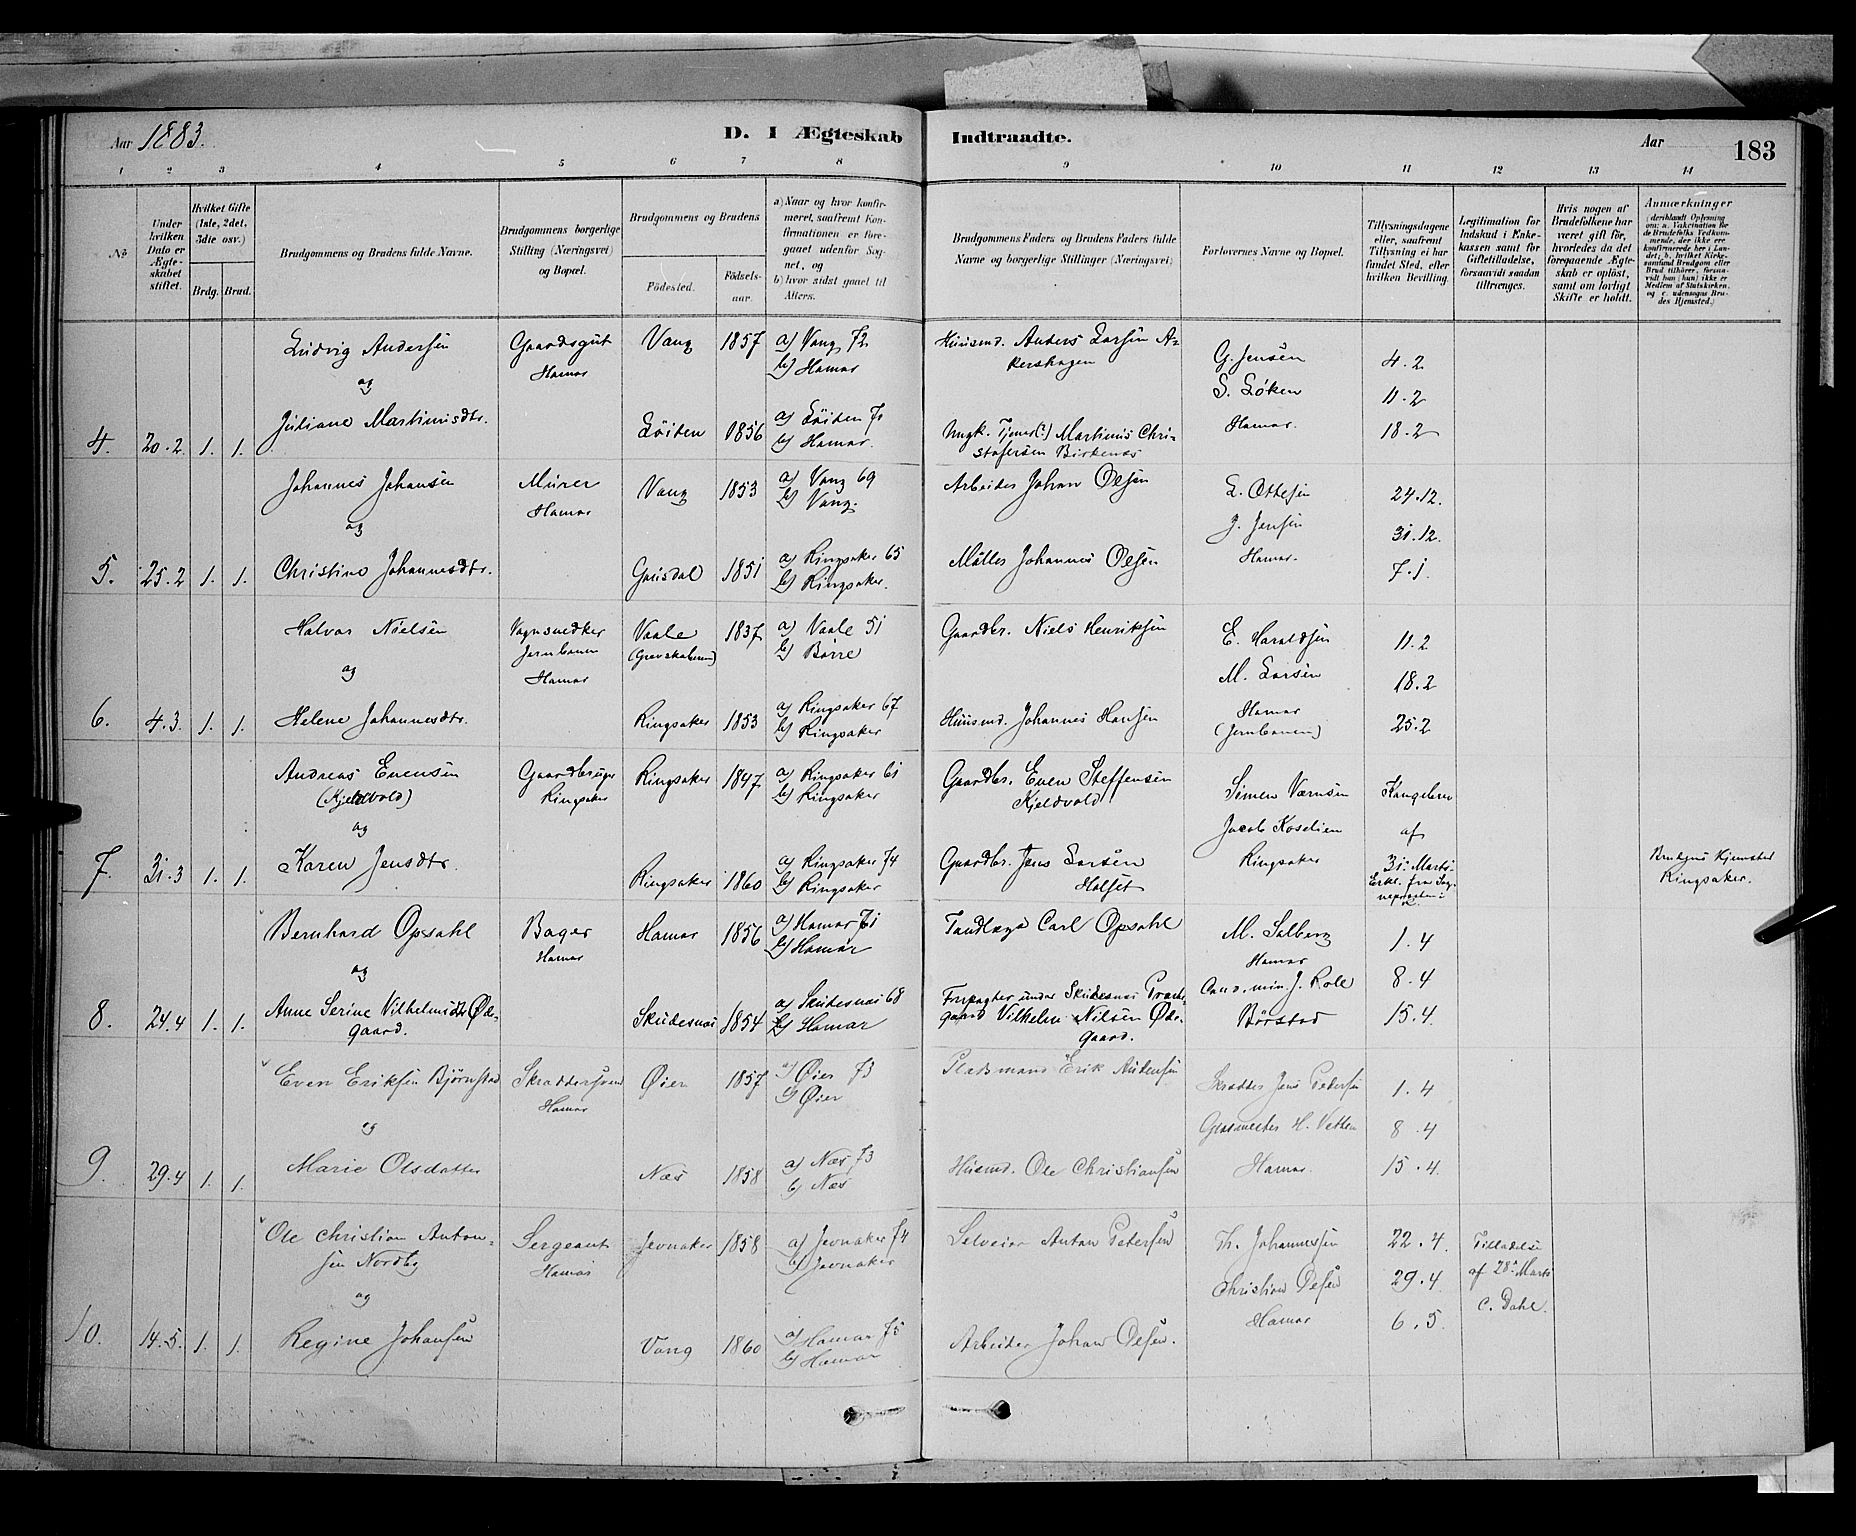 Aar 1883.
D. I Ægteskab Indtraadte.
Aar
183
1 2 3 4 5 6 7 8 9 10 11 12 13 14
No
Under hvilken Dato er Ægteskabet stiftet.
Hvilket Gifte (1ste, 2det, 3die osv.)
Brdg. Brud.
Brudgommens og Brudens fulde Navne.
Brudgommens borgerlige Stilling (Næringsvei) og Bopæl.
Brudgommens og Brudens
Födested.
Födselsaar.
a) Naar og hvor konfirmeret, saafremt Konfirmationen er foregaaet udenfor Sognet, og
b) hvor sidst gaaet til Alters.
Brudgommens Faders og Brudens Faders fulde Navne og borgerlige Stillinger (Næringsvei)
Forlovernes Navne og Bopæl.
Tillysningsdagene eller, saafremt Tillysning ei har fundet Sted, efter hvilken Bevilling.
Legitimation for Indskud i Enkekassen samt for Giftetilladelse, forsaavidt saadan tiltrænges.
Hvis nogen af Brudefolkene har været gift før, hvorledes da det foregaaende Ægteskab er oplöst, samt om lovligt Skifte er holdt.
Anmærkninger
(deriblandt Oplysning om: a. Vakcination for de Brudefolks Vedkommende, der ikke ere konfirmerede her i Landet; b. hvilket Kirkesamfund Brudgom eller Brud tilhörer, forsaavidt han (hun) ikke er Medlem af Statskirken, og c. udensogns Brudes Hjemsted.)
4. 20.2 1. 1.
Ludvig Andersen
og
Juliane Martinusdtr.
Gaardsgut
Hamar
Vang 1857 a) Vang 72
b) Hamar
Löiten 1856 a) Löiten 71
b) Hamar.
Huusmd. Anders Larsen A-
kershagen
Ungk. Tjener(?) Martinus Chri-
stofersen Birkenæs
G. Jensen
S. Løken
Hamar.
4.2
11.2
18.2
5. 25.2 1. 1.
Johannes Johansen
og
Christine Johannesdtr.
Murer
Hamar
Vang 1853 a) Vang 69
b) Vang.
Gausdal 1851 a) Ringsaker 65
b) Ringsaker.
Arbeider Johan Olsen
Møller Johannes Olsen
L. Ottesen
J. Jensen
Hamar.
24.12.
31.12.
7.1.
6. 4.3. 1. 1.
Halvor Nielsen
og
Helene Johannesdtr.
Vognsnedker
Jernbanen
Hamar
Vaale
(Grevskaberne)
1837 a) Vaale 51
b) Børre
Ringsaker 1853 a) Ringsaker 67
b) Ringsaker
Gaardbr. Niels Henriksen
Huusmd. Johannes Hansen
E. Haraldsen
M. Larsen
Hamar
(Jernbanen)
11.2
18.2
25.2
7. 31.3 1. 1.
Andreas Evensen
(Kjeldvold)
og
Karen Jensdtr.
Gaardbruger
Ringsaker
Ringsaker 1847 a) Ringsaker 61
b) Ringsaker
Ringsaker 1860 a) Ringsaker 74
b) Ringsaker
Gaardbr. Even Steffensen
Kjeldvold
Gaardbr. Jens Larsen
Holset
Simen Værnsen
Jacob Koselien
Ringsaker
Kongebrev
af
31. Marts.
Erkl. fra Sog-
nepræsten
Brudens Hjemsted
Ringsaker.
8. 24.4 1. 1.
Bernhard Opsahl
og
Anne Serine Vilhelmsdtr Øde-
gaard.
Bager
Hamar
Hamar 1856 a) Hamar 71
b) Hamar
Skudesnæs 1854 a) Skudesnæs 68
b) Hamar
Tandlæge Carl Opsahl
Forpagter under Skudesnæs Præste-
gaard Vilhelm Nilsen Øde-
gaard.
M. Solberg
Hamar
Cand. min. J. Roll
Børstad
1.4
8.4
15.4.
9. 29.4 1. 1.
Even Eriksen Bjørnstad
og
Marie Olsdatter
Skræddersvend
Hamar
Øier 1857 a) Øier 73
b) Øier
Næs 1858 a) Næs 73
b) Næs
Pladsmand Erik Andersen
Husmd. Ole Christiansen
Skrædder Jens Pedersen
Glasmester H. Vetten
Hamar.
1.4
8.4
15.4.
10. 14.5. 1. 1.
Ole Christian Anton-
sen Nordby
og
Regine Johansen
Sergeant
Hamar
Jevnaker 1858 a) Jevnaker 74
b) Jevnaker
Vang 1860 a) Hamar 75
b) Hamar
Selveier Anton Petersen
Arbeider Johan Olsen.
Th. Johannesen
Christian Olsen
Hamar
22.4.
29.4
6.5.
Tilladelse
af 28. Marts
C. Dahl.